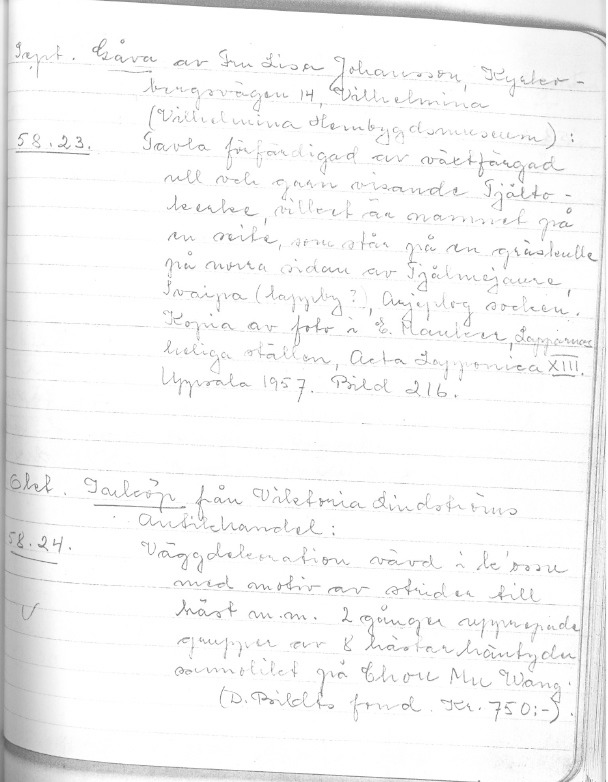 Sept. Gåva av Fru Lisa Johansson, Kyrk-
bergsvägen 14, Vilhelmina
(Vilhelmina Hembygdsmuseum):
58.23. Tavla förfärdigad av växtfärgad
ull och garn visande Tjålto-
kerke, vilket är namnet på
en seite, som står på en gräskulle
på norra sidan av Tjålmejaure,
Svaipa (lappby?), Arjeplog socken.
Kopia av foto i E. Manker, Lapparnas
heliga ställen, Acta Lapponica XIII.
Uppsala 1957. Bild 216.
Okt. Inköp från Viktoria Lindströms
Antikhandel:
58.24. Väggdekoration vävd i k'ossu
med motiv av strider till
häst m.m. 2 gånger upprepade
grupper av 8 hästar häntyder
sannolikt på Chou Mu Wang.
(D. Bildts fond. Kr. 750:-).